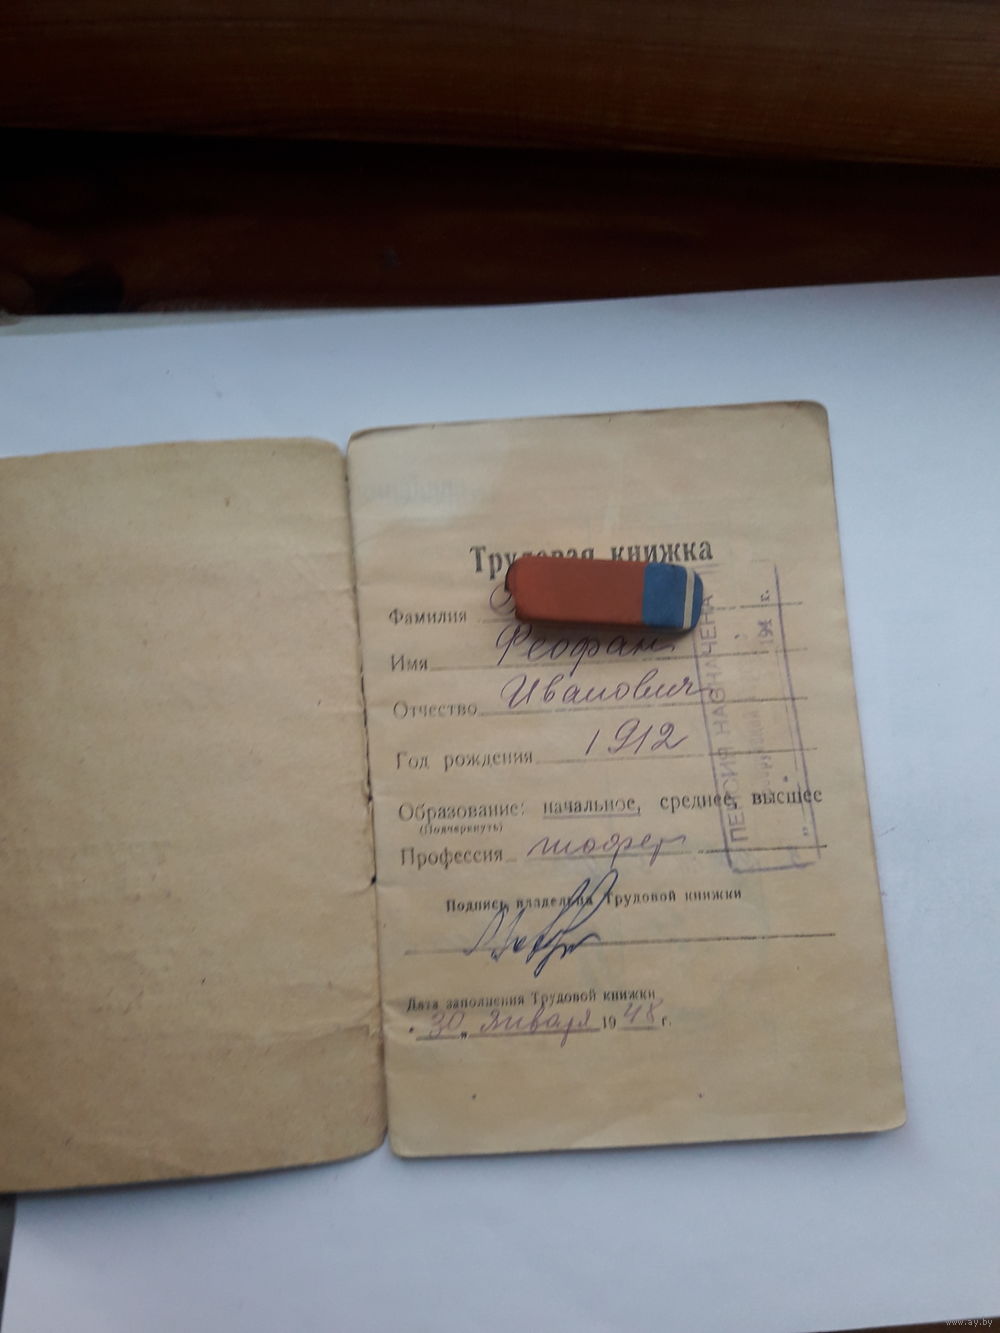 Трудовая книжка
Фамилия
Имя Феофан
Отчество Иванович
Год рождения 1912
Образование: начальное, среднее, высшее
(Подчеркнуть)
Профессия шофер
Подпись владельца Трудовой книжки
Дата заполнения Трудовой книжки
"30" Января 1948 г.
ПЕНСИЯ НАЗНАЧЕНА
194 г.
www.ay.by